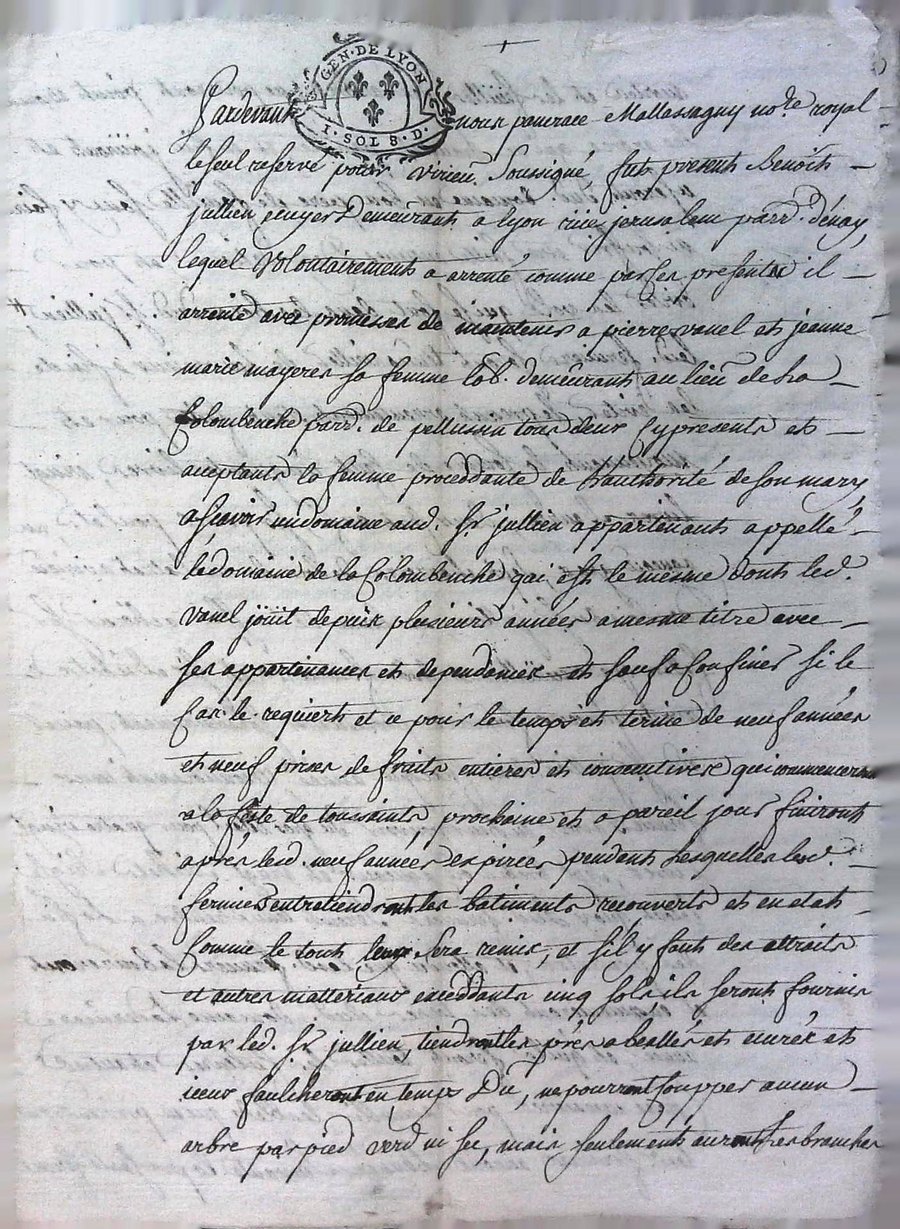 GEN·DE LYON
1·SOL 8·D·
Pardevant nous pancrace Mallassagny no.re royal
le seul reservé pour virieu Soussigné, fut present Benoist
jullien ecuyer Demeurant a lyon rüe jerusalem parr. d'enay,
lequel Volontairement a arrenté comme par ses presentes il
arrente avec promesses de maintenir a pierre vanel et jeanne
marie mayeres sa femme lab. demeurant au lieu de la
Colombenche parr. de pellussin tous deux cy presents et
acceptants la femme proceddante de l'authorité de son mary
a sçavoir un domaine aud. Sr. jullien appartenant appellé
le domaine de la Colombenche qui est le mesme dont led.
vanel joüit depuis plusieurs années a mesme titre avec
ses appartenances et dependences et sauf a Confiner si le
Cas le requiert et ce pour le temps et terme de neuf années
et neuf prises de fruits entieres et consecutives qui commenceront
a la feste de toussaints prochaine et a pareil jour finiront
après lesd. neuf années expirées pendant lesquelles lesd.
fermiers entretiendront les batiments recouverts et en etat
Comme le tout leur Sera remis, et s'il y faut des attraits
et autres matteriaux exceddants cinq sols ils seront fournis
par led. Sr. jullien, tiendront les prés abeallés et curés et
iceux faulcheront en temps Dû, ne pourront coupper aucun
arbre par pied verd ni sec, mais seulement auront les branches